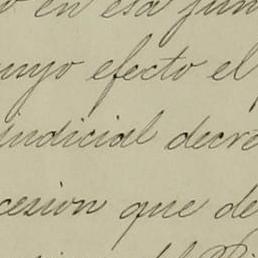 en esa jun
cuyo efecto el
judicial decre
cesion que de
del